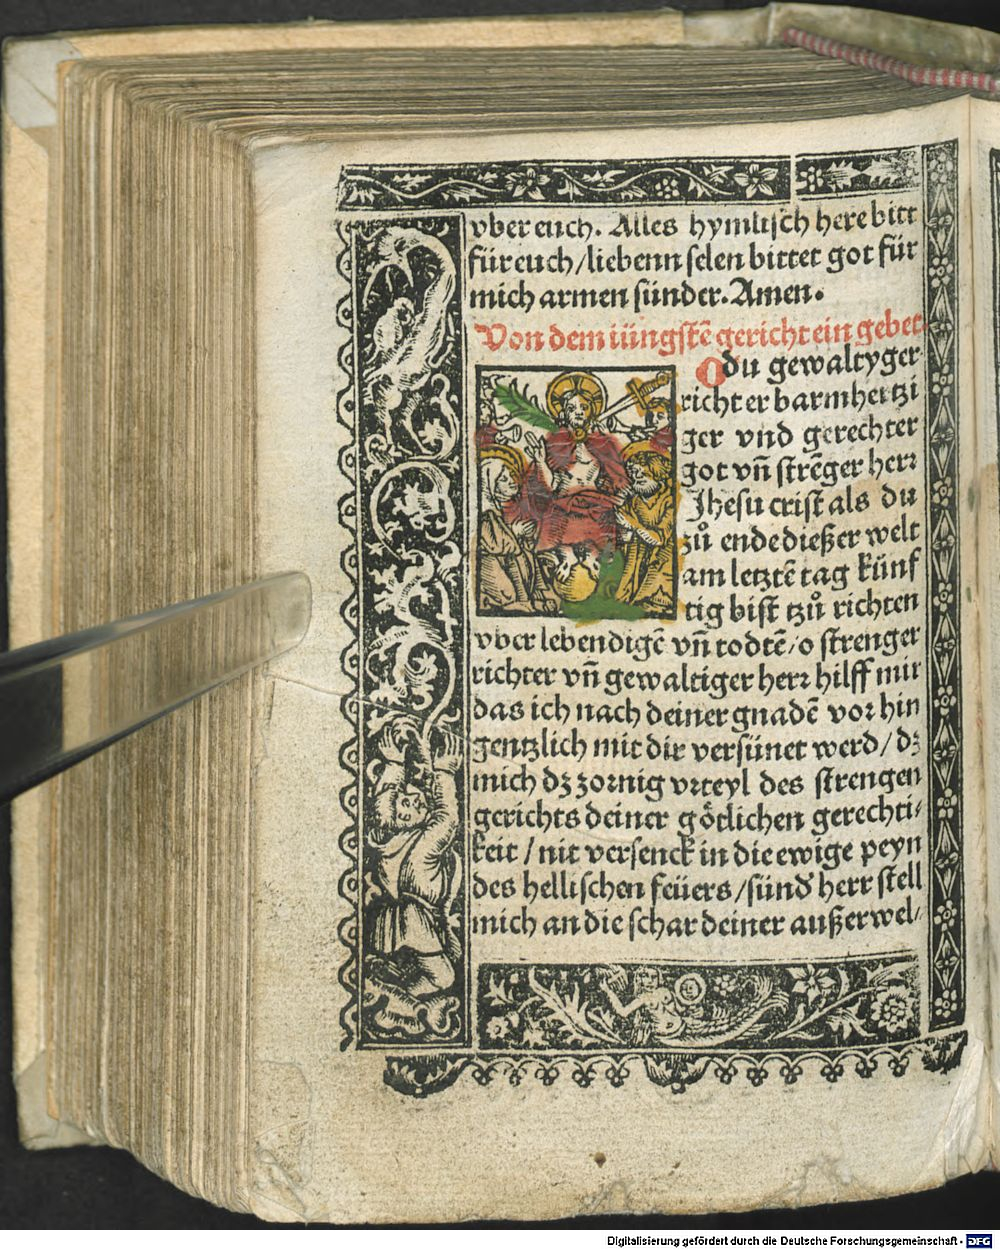 vber euch. Alles hymlisch here bitt
für euch/liebenn selen bittet got für
mich armen sünder. Amen.
Von dem iüngstē gericht ein gebet.
O du gewaltyger
richter barmhertzi
ger vnd gerechter
got vñ strēger herꝛ
Jhesu crist als du
zů ende dießer welt
am letztē tag künf
tig bist tzů richten
vber lebendigē vñ todtē/o strenger
richter vñ gewaltiger herꝛ hilff mir
das ich nach deiner gnadē voꝛ hin
gentzlich mit dir versünet werd/dꝫ
mich dꝫ zoꝛnig vꝛteyl des strengen
gerichts deiner götlichen gerechti⸗
keit/nit versenck in die ewige peyn
des hellischen feüers/sünd̕ herr stell
mich an die schar deiner außerwel⸗
Digitalisierung gefördert durch die Deutsche Forschungsgemeinschaft - DFG